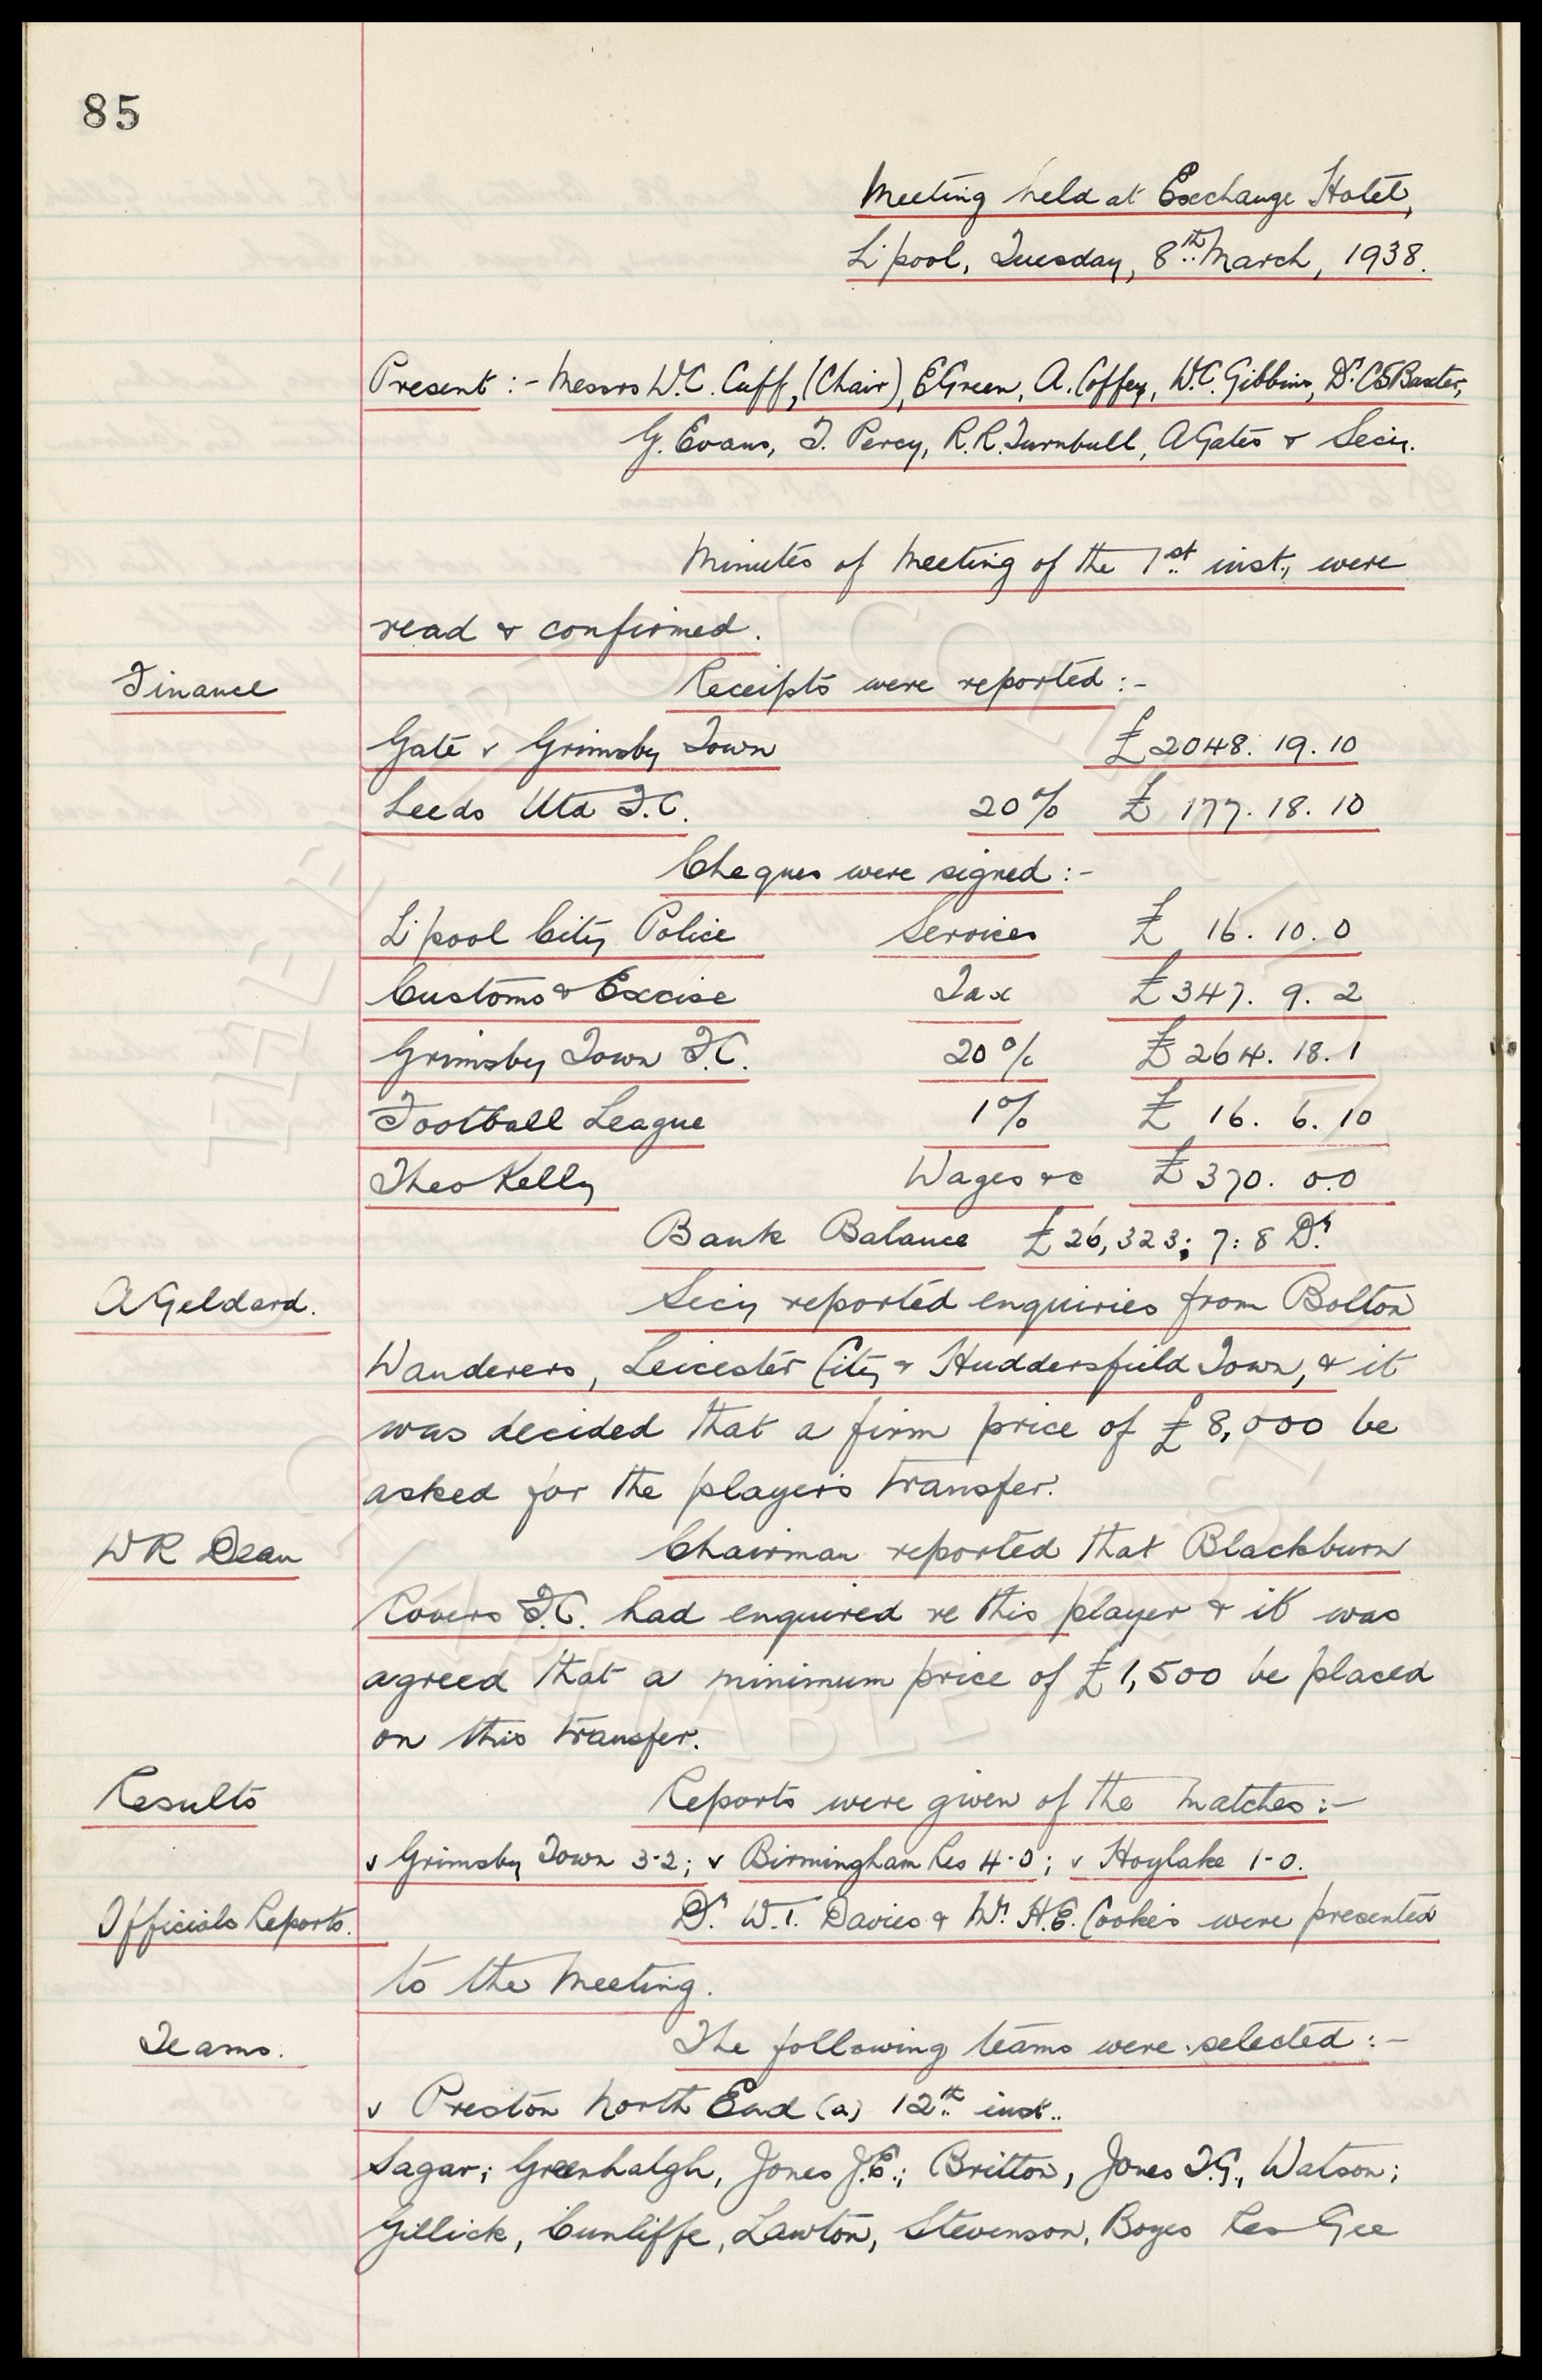 85
Meeting held at Exchange Hotel,
L'pool, Tuesday, 8th March, 1938.
Present :- Messrs W.C. Cuff, (Chair), E Green, A. Coffey, W.C. Gibbins, Dr. C S Baxter,
G. Evans, T. Percy, R.R. Turnbull, A Gates & Secy.
Minutes of Meeting of the 1st inst., were
read & confirmed.
Finance Receipts were reported :-
Gate v Grimsby Town £2048. 19. 10
Leeds Utd F.C. 20% £ 177. 18. 10
Cheques were signed :-
L'pool City Police Services £ 16. 10. 0
Customs & Excise Tax £347. 9. 2
Grimsby Town F.C. 20% £264. 18. 1
Football League 1% £ 16. 6. 10
Theo Kelly Wages &c £370. 0.0
Bank Balance £26,323: 7: 8 Dr.
A Geldard. Secy reported enquiries from Bolton
Wanderers, Leicester City & Huddersfield Town, & it
was decided that a firm price of £8,000 be
asked for the player's transfer.
W R Dean Chairman reported that Blackburn
Rovers F.C. had enquired re this player & it was
agreed that a minimum price of £1,500 be placed
on this transfer.
Results Reports were given of the matches :-
v Grimsby Town 3-2; v Birmingham Res 4-0; v Hoylake 1-0.
Officials Reports. Dr. W.T. Davies & Mr. H.E. Cooke's were presented
to the Meeting.
Teams. The following teams were selected :-
v Preston North End (a) 12th inst..
Sagar; Greenhalgh, Jones J.E.; Britton, Jones T.G., Watson;
Gillick, Cunliffe, Lawton, Stevenson, Boyes Res Gee